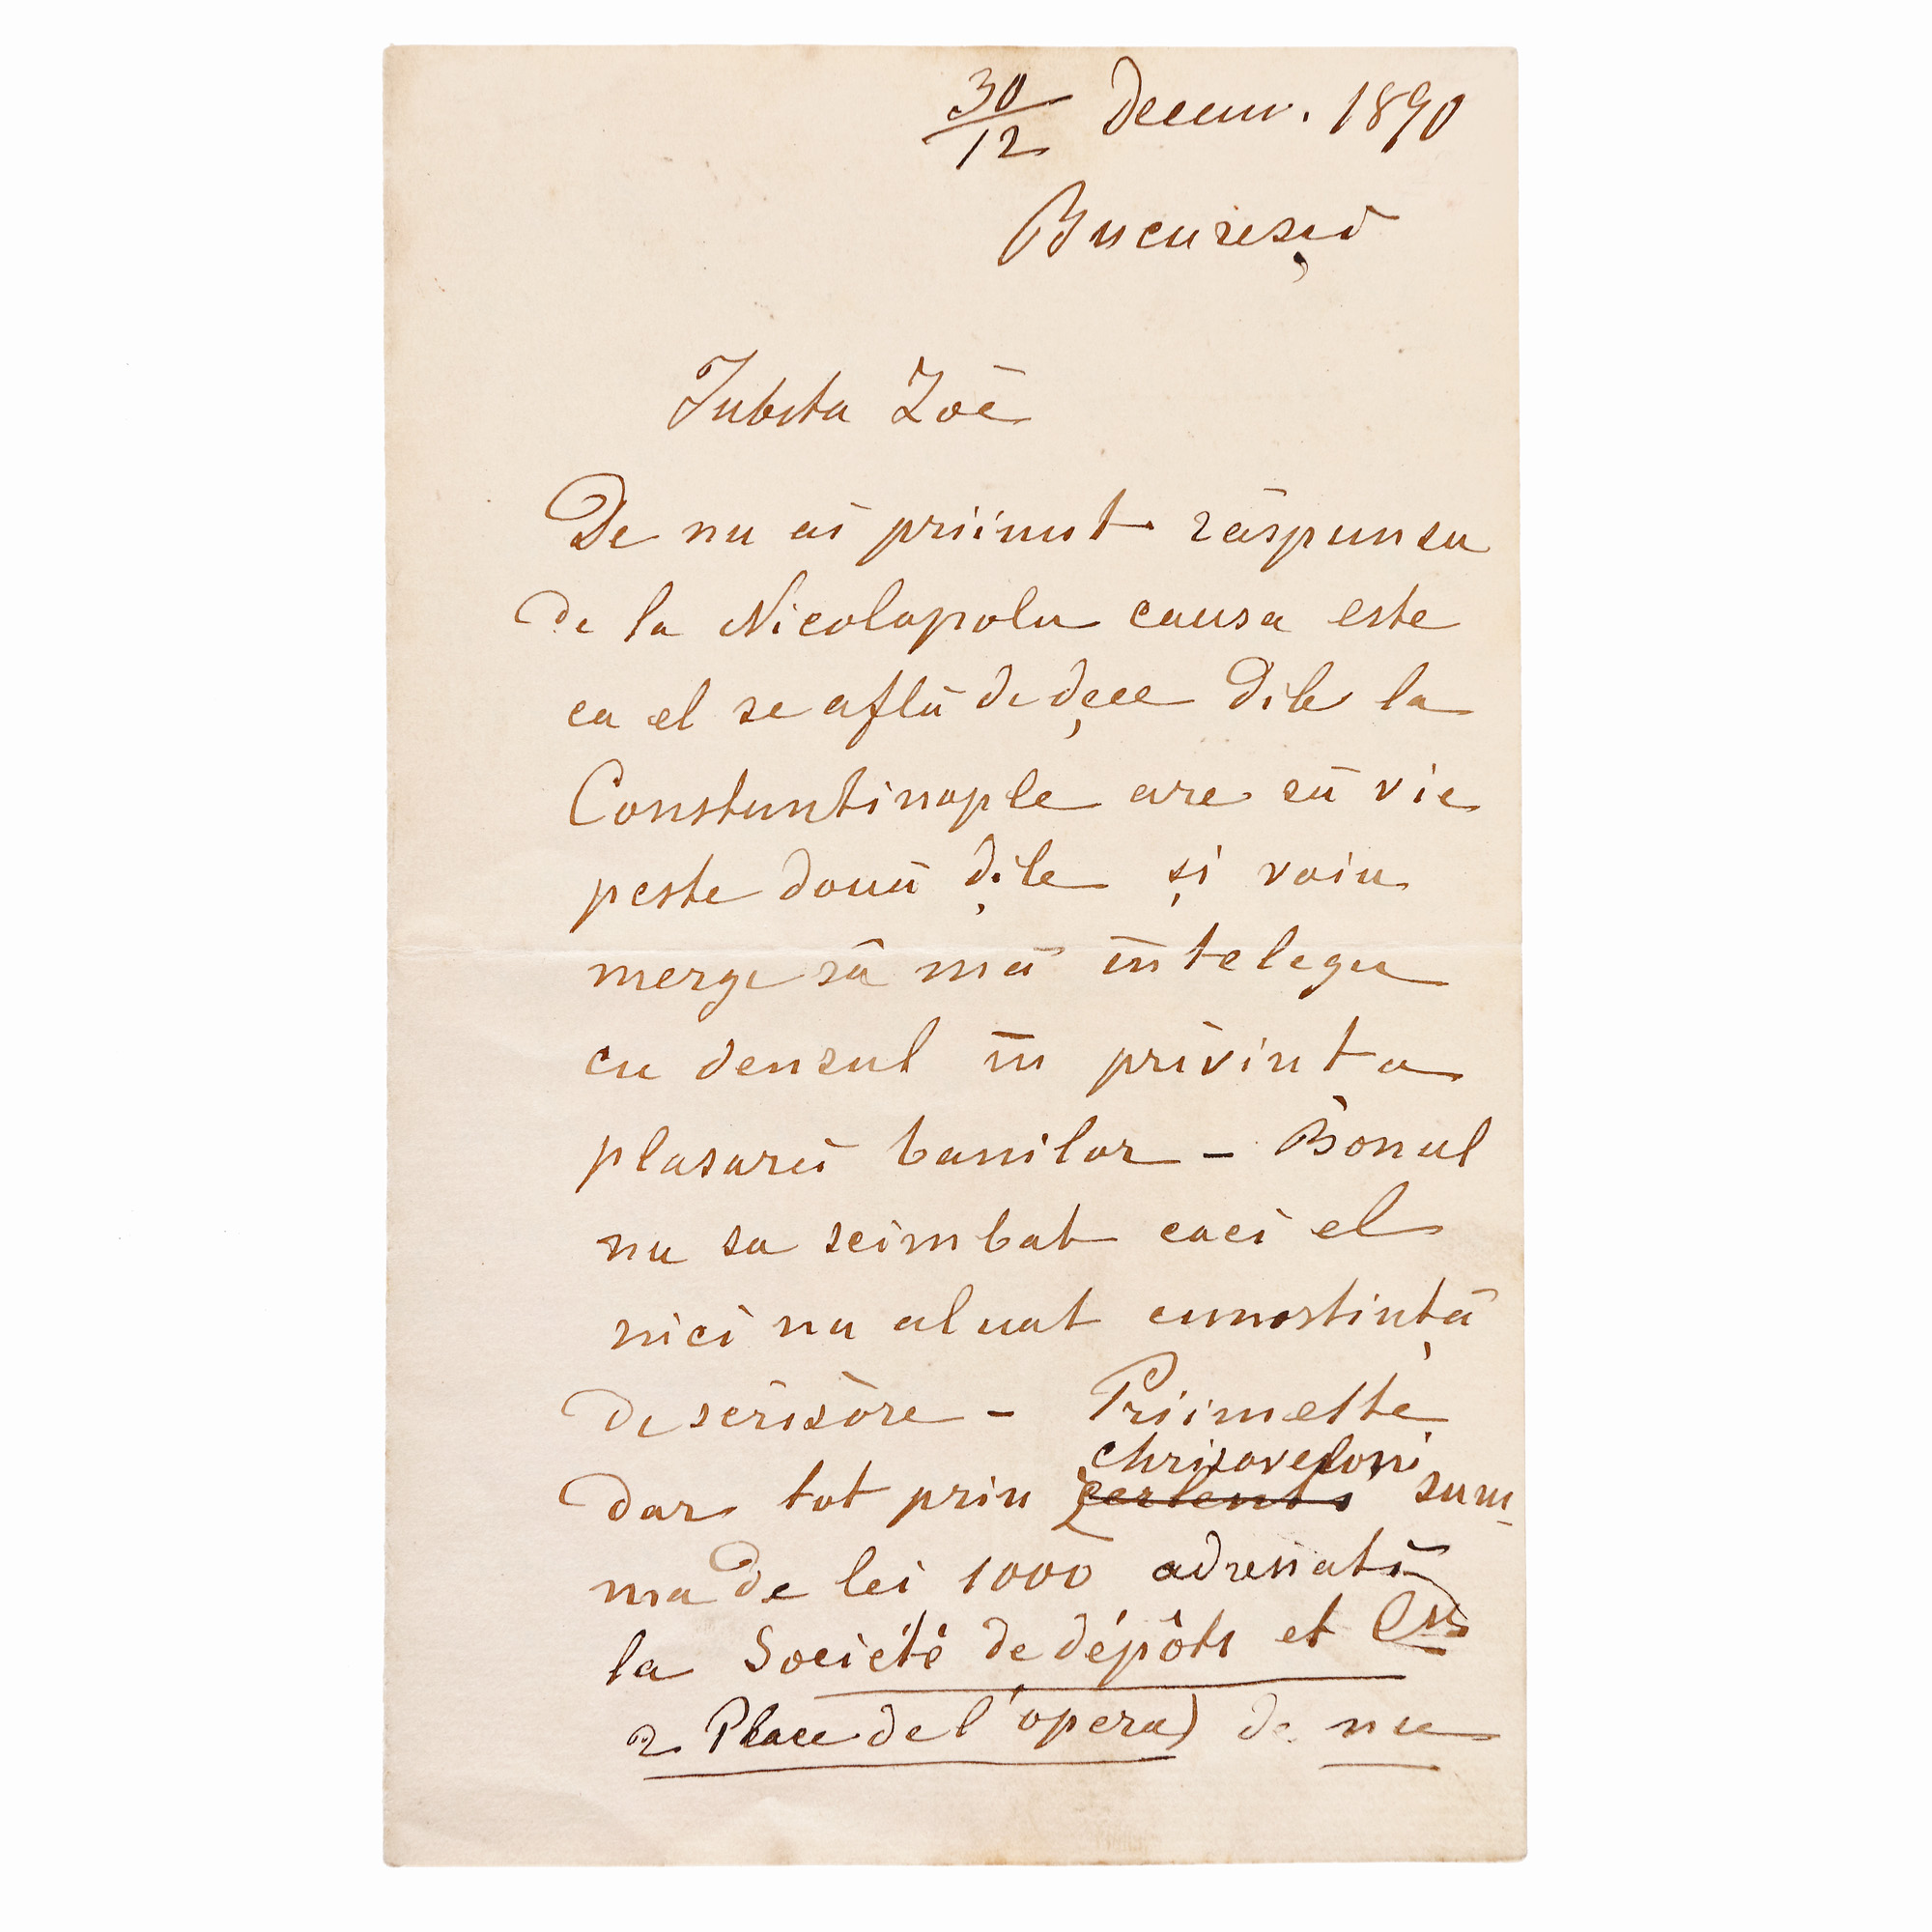 30/12 Decem. 1890
Bucuresci
Iubita Zoè
De nu ai priimit răspunsu
de la Nicolopolu causa este
ca el se află de dece dile la
Constantinople are să vie
peste două d̦ile și voiu
merge să mă intelegu
cu densul in privinta
plasarei banilor – Bonul
nu sa scimbat caci el
nici nu aluat cunostință
de scrisòre – Priimeste
chrisoveloni
dar tot prin sum
ma de lei 1000 adresati
la Société de dépôts et
2 Place de l'opera) de nu